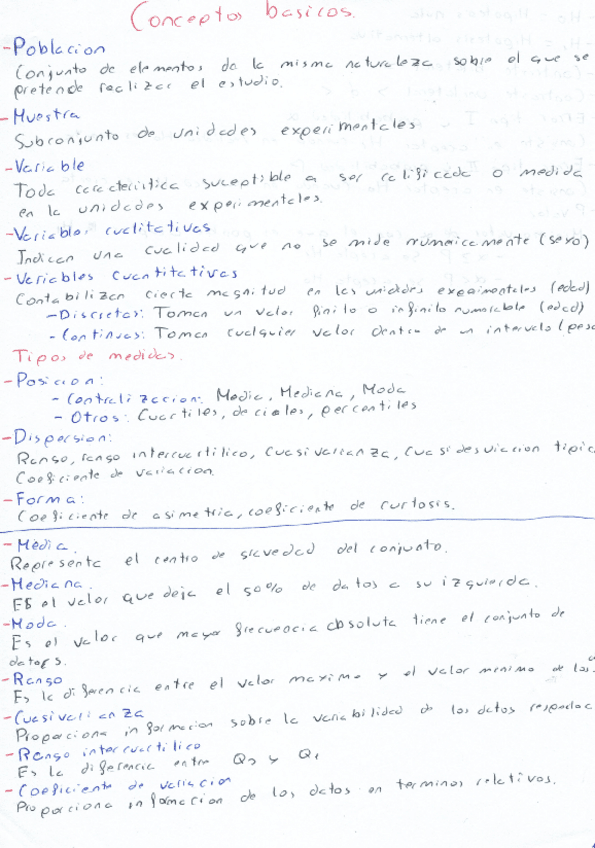 Conceptos basicos.
- Poblacion
Conjunto de elementos de la misma naturaleza sobre el que se
pretende realizar el estudio.
- Muestra
Subconjunto de unidades experimentales
- Variable
Toda caracteristica suceptible a ser calificada o medida
en la unidades experimentales.
- Variables cualitativas
Indican una cualidad que no se mide numericamente (sexo)
- Variables cuantitativas
Contabilizan cierta magnitud en las unidades experimentales (edad)
- Discretas: Toman un valor finito o infinito numerable (edad)
- Continuas: Toman cualquier valor dentro de un intervalo (peso
Tipos de medidas.
- Posicion:
- Centralizacion: Media, Mediana, Moda
- Otros: Cuartiles, deciales, percentiles
- Dispersion:
Rango, rango intercuartilico, Cuasivarianza, Cuasidesviacion tipica
Coeficiente de variacion.
- Forma:
Coeficiente de asimetria, coeficiente de curtosis.
- Media.
Representa el centro de gravedad del conjunto.
- Mediana.
ES el valor que deja el 50% de datos a su izquierda.
- Moda.
Es el valor que mayor frecuencia absoluta tiene el conjunto de
datos.
- Rango
Es la diferencia entre el valor maximo y el valor minimo de los
- Cuasivarianza
Proporciona informacion sobre la variabilidad de los datos respecto
- Rango intercuartilico
Es la diferencia entre Q3 y Q1
- Coeficiente de variacion
Proporciona informacion de los datos en terminos relativos.